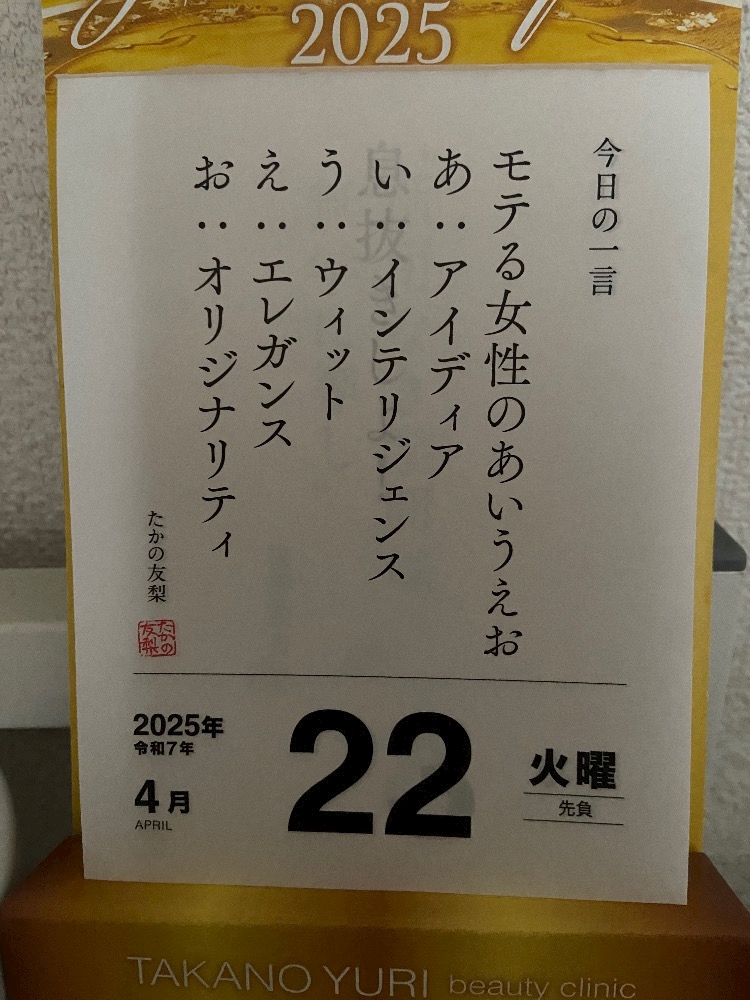 2025
今日の一言
モテる女性のあいうえお
あ：アイディア
い：インテリジェンス
う：ウィット
え：エレガンス
お：オリジナリティ
たかの友梨
たかの友梨
2025年
令和7年
4月
APRIL
22
火曜
先負
TAKANO YURI beauty clinic